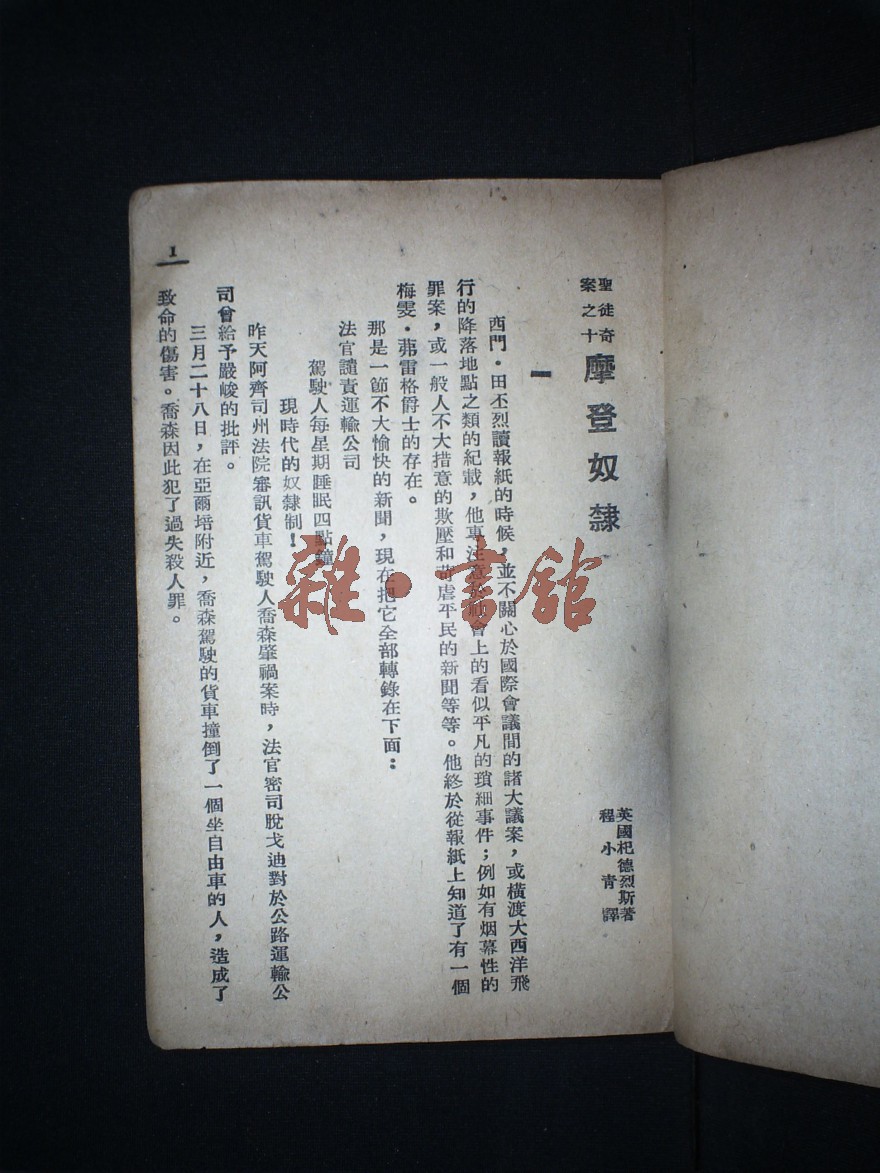 聖徒奇
案之十
摩登奴隸
英國杞德烈斯著
程小青譯
一
西門・田丕烈讀報紙的時候，並不關心於國際會議間的諸大議案，或橫渡大西洋飛
行的降落地點之類的紀載，他專注意社會上的看似平凡的瑣細事件；例如有烟幕性的
罪案，或一般人不大措意的欺壓和苛虐平民的新聞等等。他終於從報紙上知道了有一個
梅雯・茀雷格爵士的存在。
那是一節不大愉快的新聞，現在把它全部轉錄在下面：
法官譴責運輸公司
駕駛人每星期睡眠四點鐘
現時代的奴隸制！
昨天阿齊司州法院審訊貨車駕駛人喬森肇禍案時，法官密司脫戈迪對於公路運輸公
司曾給予嚴峻的批評。
三月二十八日，在亞爾培附近，喬森駕駛的貨車撞倒了一個坐自由車的人，造成了
致命的傷害。喬森因此犯了過失殺人罪。
1
雜・書館